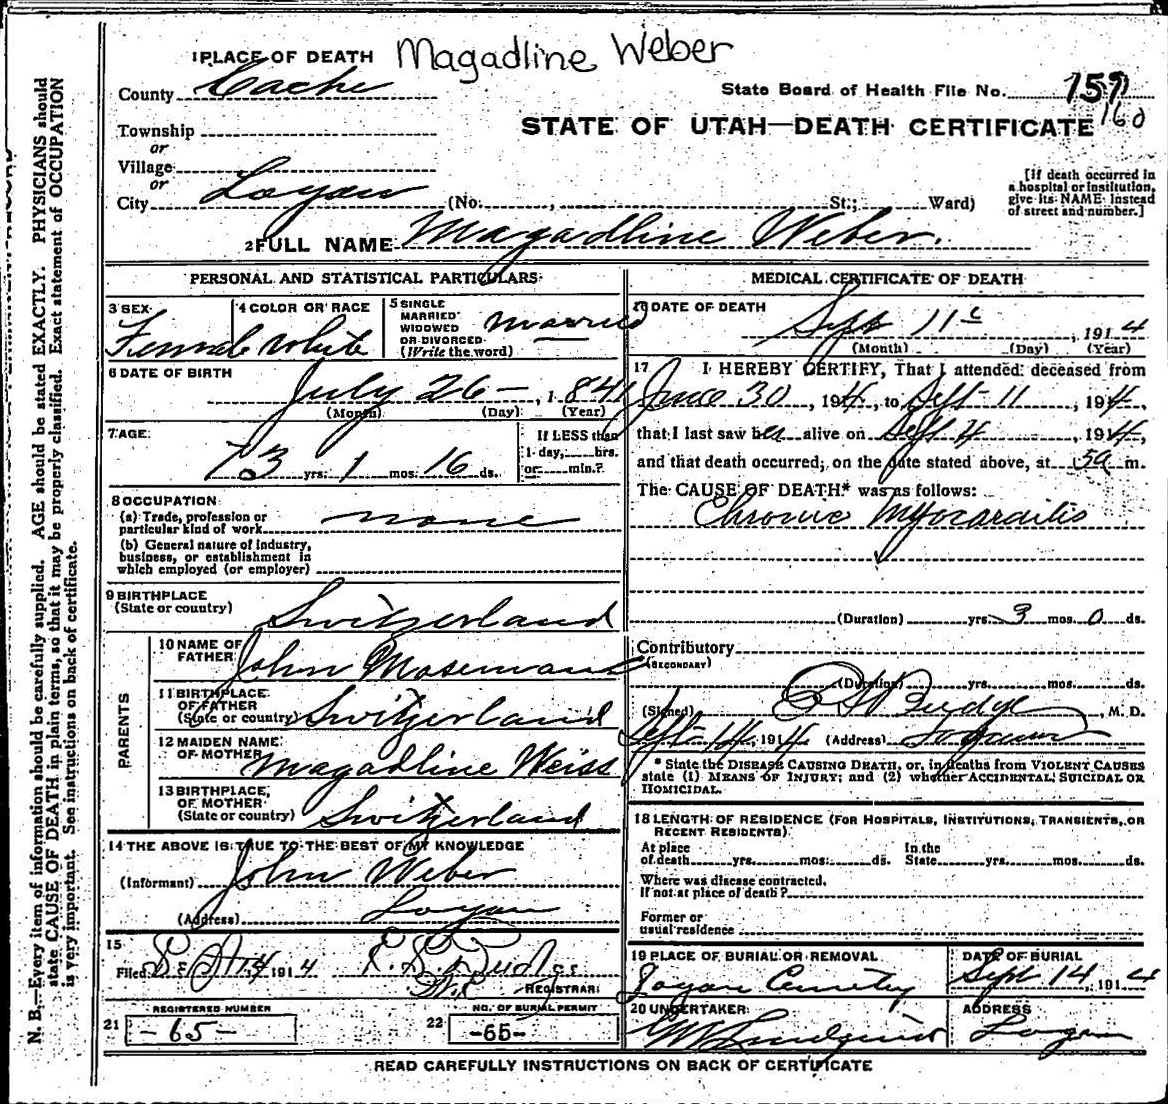 1 PLACE OF DEATH Magadline Weber
County Cache
State Board of Health File No. 159
160
STATE OF UTAH—DEATH CERTIFICATE
Township
or
Village
or
City Logan (No. , St.; Ward)
[If death occurred in
a hospital or institution,
give its NAME instead
of street and number.]
2 FULL NAME Magadline Weber.
PERSONAL AND STATISTICAL PARTICULARS
3 SEX Female
4 COLOR OR RACE White
5 SINGLE
MARRIED
WIDOWED
OR DIVORCED
(Write the word) married
6 DATE OF BIRTH
July 26 — , 1841
(Month) (Day) (Year)
7 AGE
73 yrs. 1 mos. 16 ds.
If LESS than
1 day, hrs.
or min.?
8 OCCUPATION
(a) Trade, profession or
particular kind of work none
(b) General nature of industry,
business, or establishment in
which employed (or employer)
9 BIRTHPLACE
(State or country) Switzerland
PARENTS
10 NAME OF
FATHER John Mosemann
11 BIRTHPLACE
OF FATHER
(State or country) Switzerland
12 MAIDEN NAME
OF MOTHER Magadline Weiss
13 BIRTHPLACE
OF MOTHER
(State or country) Switzerland
14 THE ABOVE IS TRUE TO THE BEST OF MY KNOWLEDGE
(Informant) John Weber
(Address) Logan
15
Filed Sept 14 1914
REGISTRAR
REGISTERED NUMBER
21 -65-
NO. OF BURIAL PERMIT
22 -65-
MEDICAL CERTIFICATE OF DEATH
16 DATE OF DEATH
Sept 11 , 1914
(Month) (Day) (Year)
17 I HEREBY CERTIFY, That I attended deceased from
June 30 , 1914, to Sept 11 , 1914,
that I last saw her alive on Sept 4 , 1914,
and that death occurred, on the date stated above, at 5a m.
The CAUSE OF DEATH* was as follows:
Chronic Myocarditis
(Duration) yrs. 3 mos. 0 ds.
Contributory
(SECONDARY)
(Duration) yrs. mos. ds.
(Signed) Budge, M. D.
Sept 14, 1914 (Address) Logan
* State the DISEASE CAUSING DEATH, or, in deaths from VIOLENT CAUSES
state (1) MEANS OF INJURY; and (2) whether ACCIDENTAL, SUICIDAL OR
HOMICIDAL.
18 LENGTH OF RESIDENCE (FOR HOSPITALS, INSTITUTIONS, TRANSIENTS, OR
RECENT RESIDENTS)
At place
of death yrs. mos. ds.
In the
State yrs. mos. ds.
Where was disease contracted,
If not at place of death?
Former or
usual residence
19 PLACE OF BURIAL OR REMOVAL
Logan Cemetery
DATE OF BURIAL
Sept 14, 1914
20 UNDERTAKER
Lundquist
ADDRESS
Logan
READ CAREFULLY INSTRUCTIONS ON BACK OF CERTIFICATE
N. B.—Every item of information should be carefully supplied. AGE should be stated EXACTLY. PHYSICIANS should
state CAUSE OF DEATH in plain terms, so that it may be properly classified. Exact statement of OCCUPATION
is very important. See instructions on back of certificate.